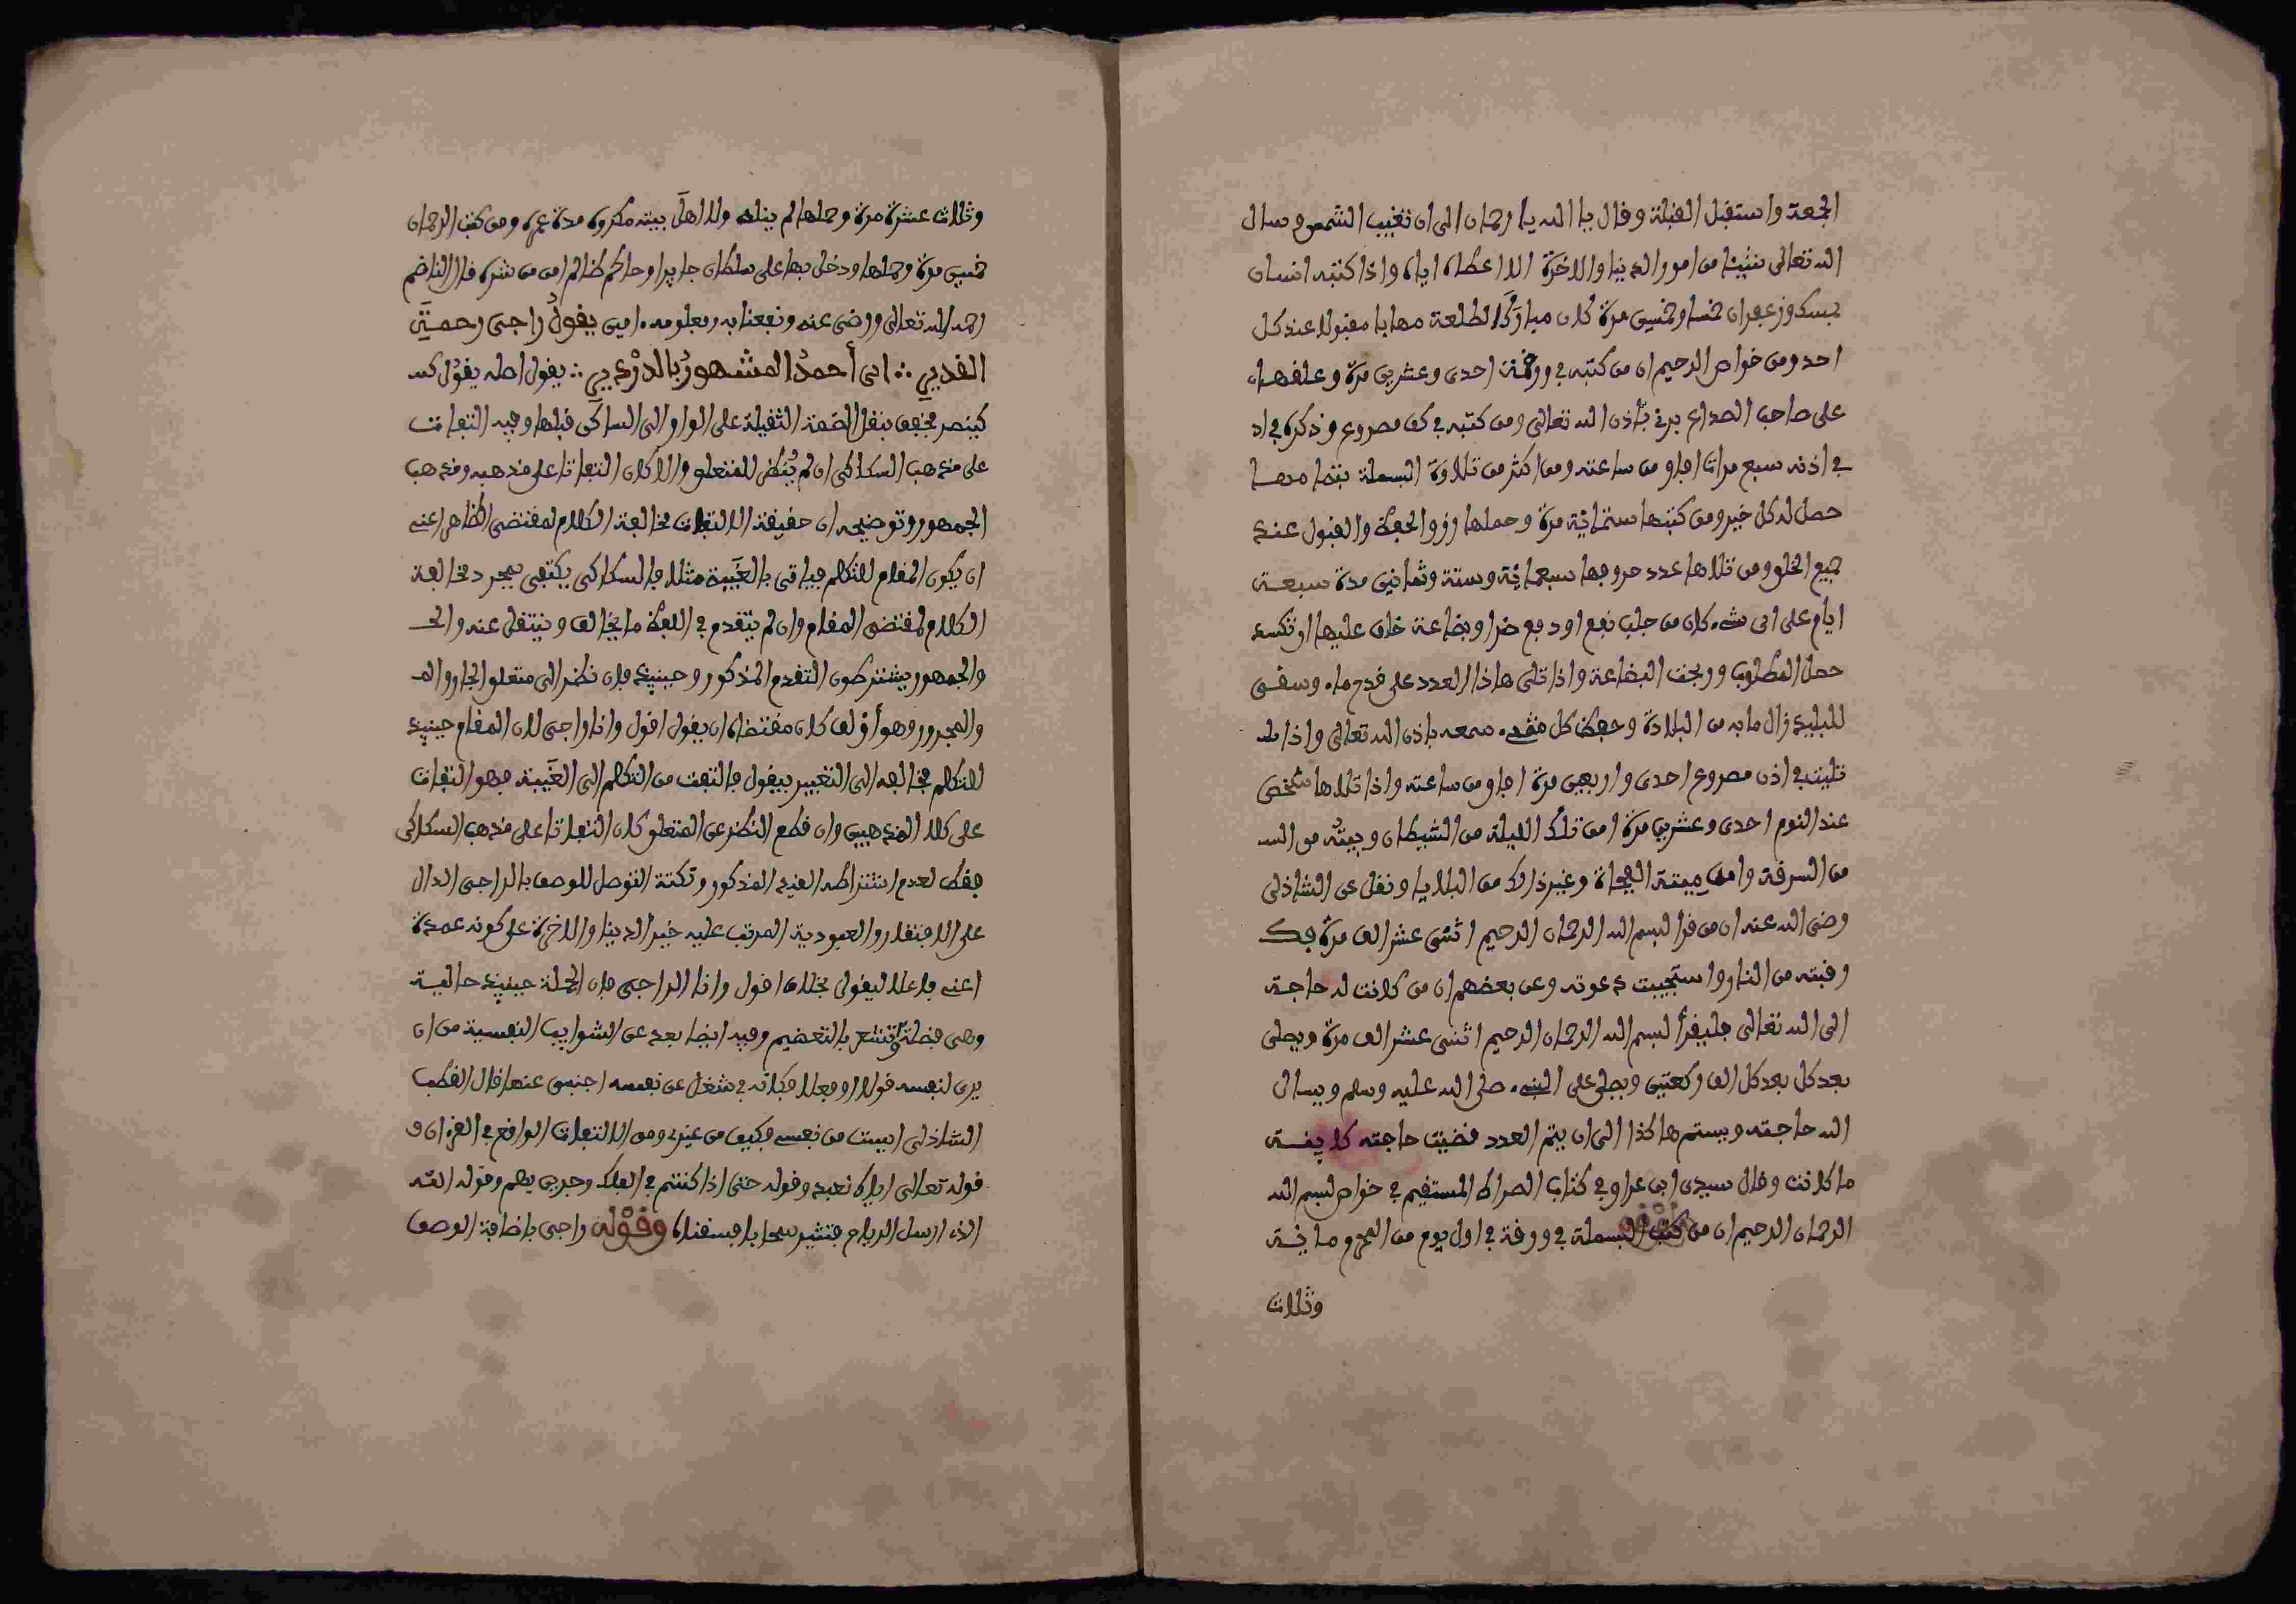 الجمعة واستقبل القبلة وقال يا الله يا رحمان الى ان تغيب الشمس وسال
الله تعالى شيئا من امور الدنيا والاخرة الا اعطاه اياه واذا كتبه انسان
بمسك وزعفران خمسا وخمسين مرة كان مبارك الطلعة مهابا مقبولا عند كل
احد ومن خواص الرحيم ان من كتبه في ورقة احدى وعشرين مرة وعلقها
على صاحب الصداع برئ باذن الله تعالى ومن كتبه في كف مصروع وذكره في اذ
في اذنه سبع مرات افاق من ساعته ومن اكثر من تلاوة البسملة بتمامها
حصل له كل خير ومن كتبها ستمائة مرة وحملها رزق الحفظ والقبول عند
جميع الخلق ومن تلاها عدد حروفها سبعمائة وستة وثمانين مدة سبعة
ايام على اى شىء كان من جلب نفع او دفع ضر او بضاعة خاف عليها او تكسد
حصل المطلوب وربحت البضاعة واذا تلى هاذا العدد على قدح ماء وسقى
للبليد زال ما به من البلادة وحفظ كل شىء سمعه باذن الله تعالى واذا
تليت في اذن مصروع احدى واربعين مرة افاق من ساعته واذا تلاها شخص
عند النوم احدى وعشرين مرة امن تلك الليلة من الشيطان وبيته من الس
من السرقة وامن ميتة الفجاة وغير ذالك من البلايا ونقل عن الشاذلى
رضى الله عنه ان من قرا لبسم الله الرحمان الرحيم اثنى عشر الف مرة فك
رقبته من النار واستجيبت دعوته وعن بعضهم ان من كانت له حاجة
الى الله تعالى فليقرأ لبسم الله الرحمان الرحيم اثنى عشر الف مرة ويصلى
بعد كل بعد كل الف ركعتين ويصلى على النبىء صلى الله عليه وسلم ويسال
الله حاجته ويستمر هاكذا الى ان يتم العدد قضيت حاجته كاينة
ما كانت وقال سيدى ابن عراق في كتاب الصراط المستقيم في خواص لبسم الله
الرحمان الرحيم ان من كتب البسملة في ورقة في اول يوم من المحرم مائة
وثلاث
وثلاث عشرة مرة وحملها لم ينله ولا اهل بيته مكروه مدة عمره ومن كتب الرحمان
خمسين مرة وحملها ودخل بها على سلطان جاير او حاكم ظالم امن من شره قال الناظم
رحمه الله تعالى ورضى عنه ونفعنا به وبعلومه امين يقولُ راجى رحمةِ
القديرِ ∴ اى أحمدُ المشهورُ بالدرْديرِ ∴ يقول اصله يقوُل كـ
كينصر مخفف بنقل الضمة الثقيلة على الواو الى الساكن قبلها وفيه التفات
على مذهب السكاكى ان لم يُنظر للمتعلق والا كان التفاتا على مذهبه ومذهب
الجمهور وتوضيحه ان حقيقة الالتفات مخالفة الكلام لمقتضى الظاهر اعنى
ان يكون المقام للتكلم فياتى بالغَيبة مثلا فالسكاكى يكتفى بمجرد مخالفة
الكلام لمقتضى المقام وان لم يتقدم في اللفظ ما يخالف وينتقل عنه والجـ
والجمهور يشترطون التقدم المذكور وحينيذ فان نظر الى متعلق الجار والمـ
والمجرور وهو أؤلف كان مقتضاه ان يقول اقول وانا راجى لان المقام حينيذ
للتكلم فخالفه الى التعبير بيقول فالتفت من التكلم الى الغَيبة فهو التفات
على كلا المذهبين وان قطع النظر عن المتعلق كان التفاتا على مذهب السكاكى
فقط لعدم اشتراطه القيد المذكور ونكتة التوصل للوصف بالراجى الدال
على الافتقار والعبودية المرتب عليه خير الدنيا والاخرة على كونه عمدة
اعنى فاعلا ليقولُ بخلاف اقول وانا الراجى فان الجملة حينيذ حالية
وهى فضلة وتشعر بالتعظيم وفيه ايضا بعد عن الشوايب النفسية من ان
يرى لنفسه قولا او فعلا فكانه في شغل عن نفسه اجنبى عنها قال القطب
الشاذلى ايست من نفسى فكيف من غيرى ومن الالتفات الواقع في القرءان و
قوله تعالى اياك نعبد وقوله حتى اذا كنتم في الفلك وجرين بهم وقوله الله
الذى ارسل الرياح فتثير سحابا فسقناه وقوْله راجى باضافة الوصف